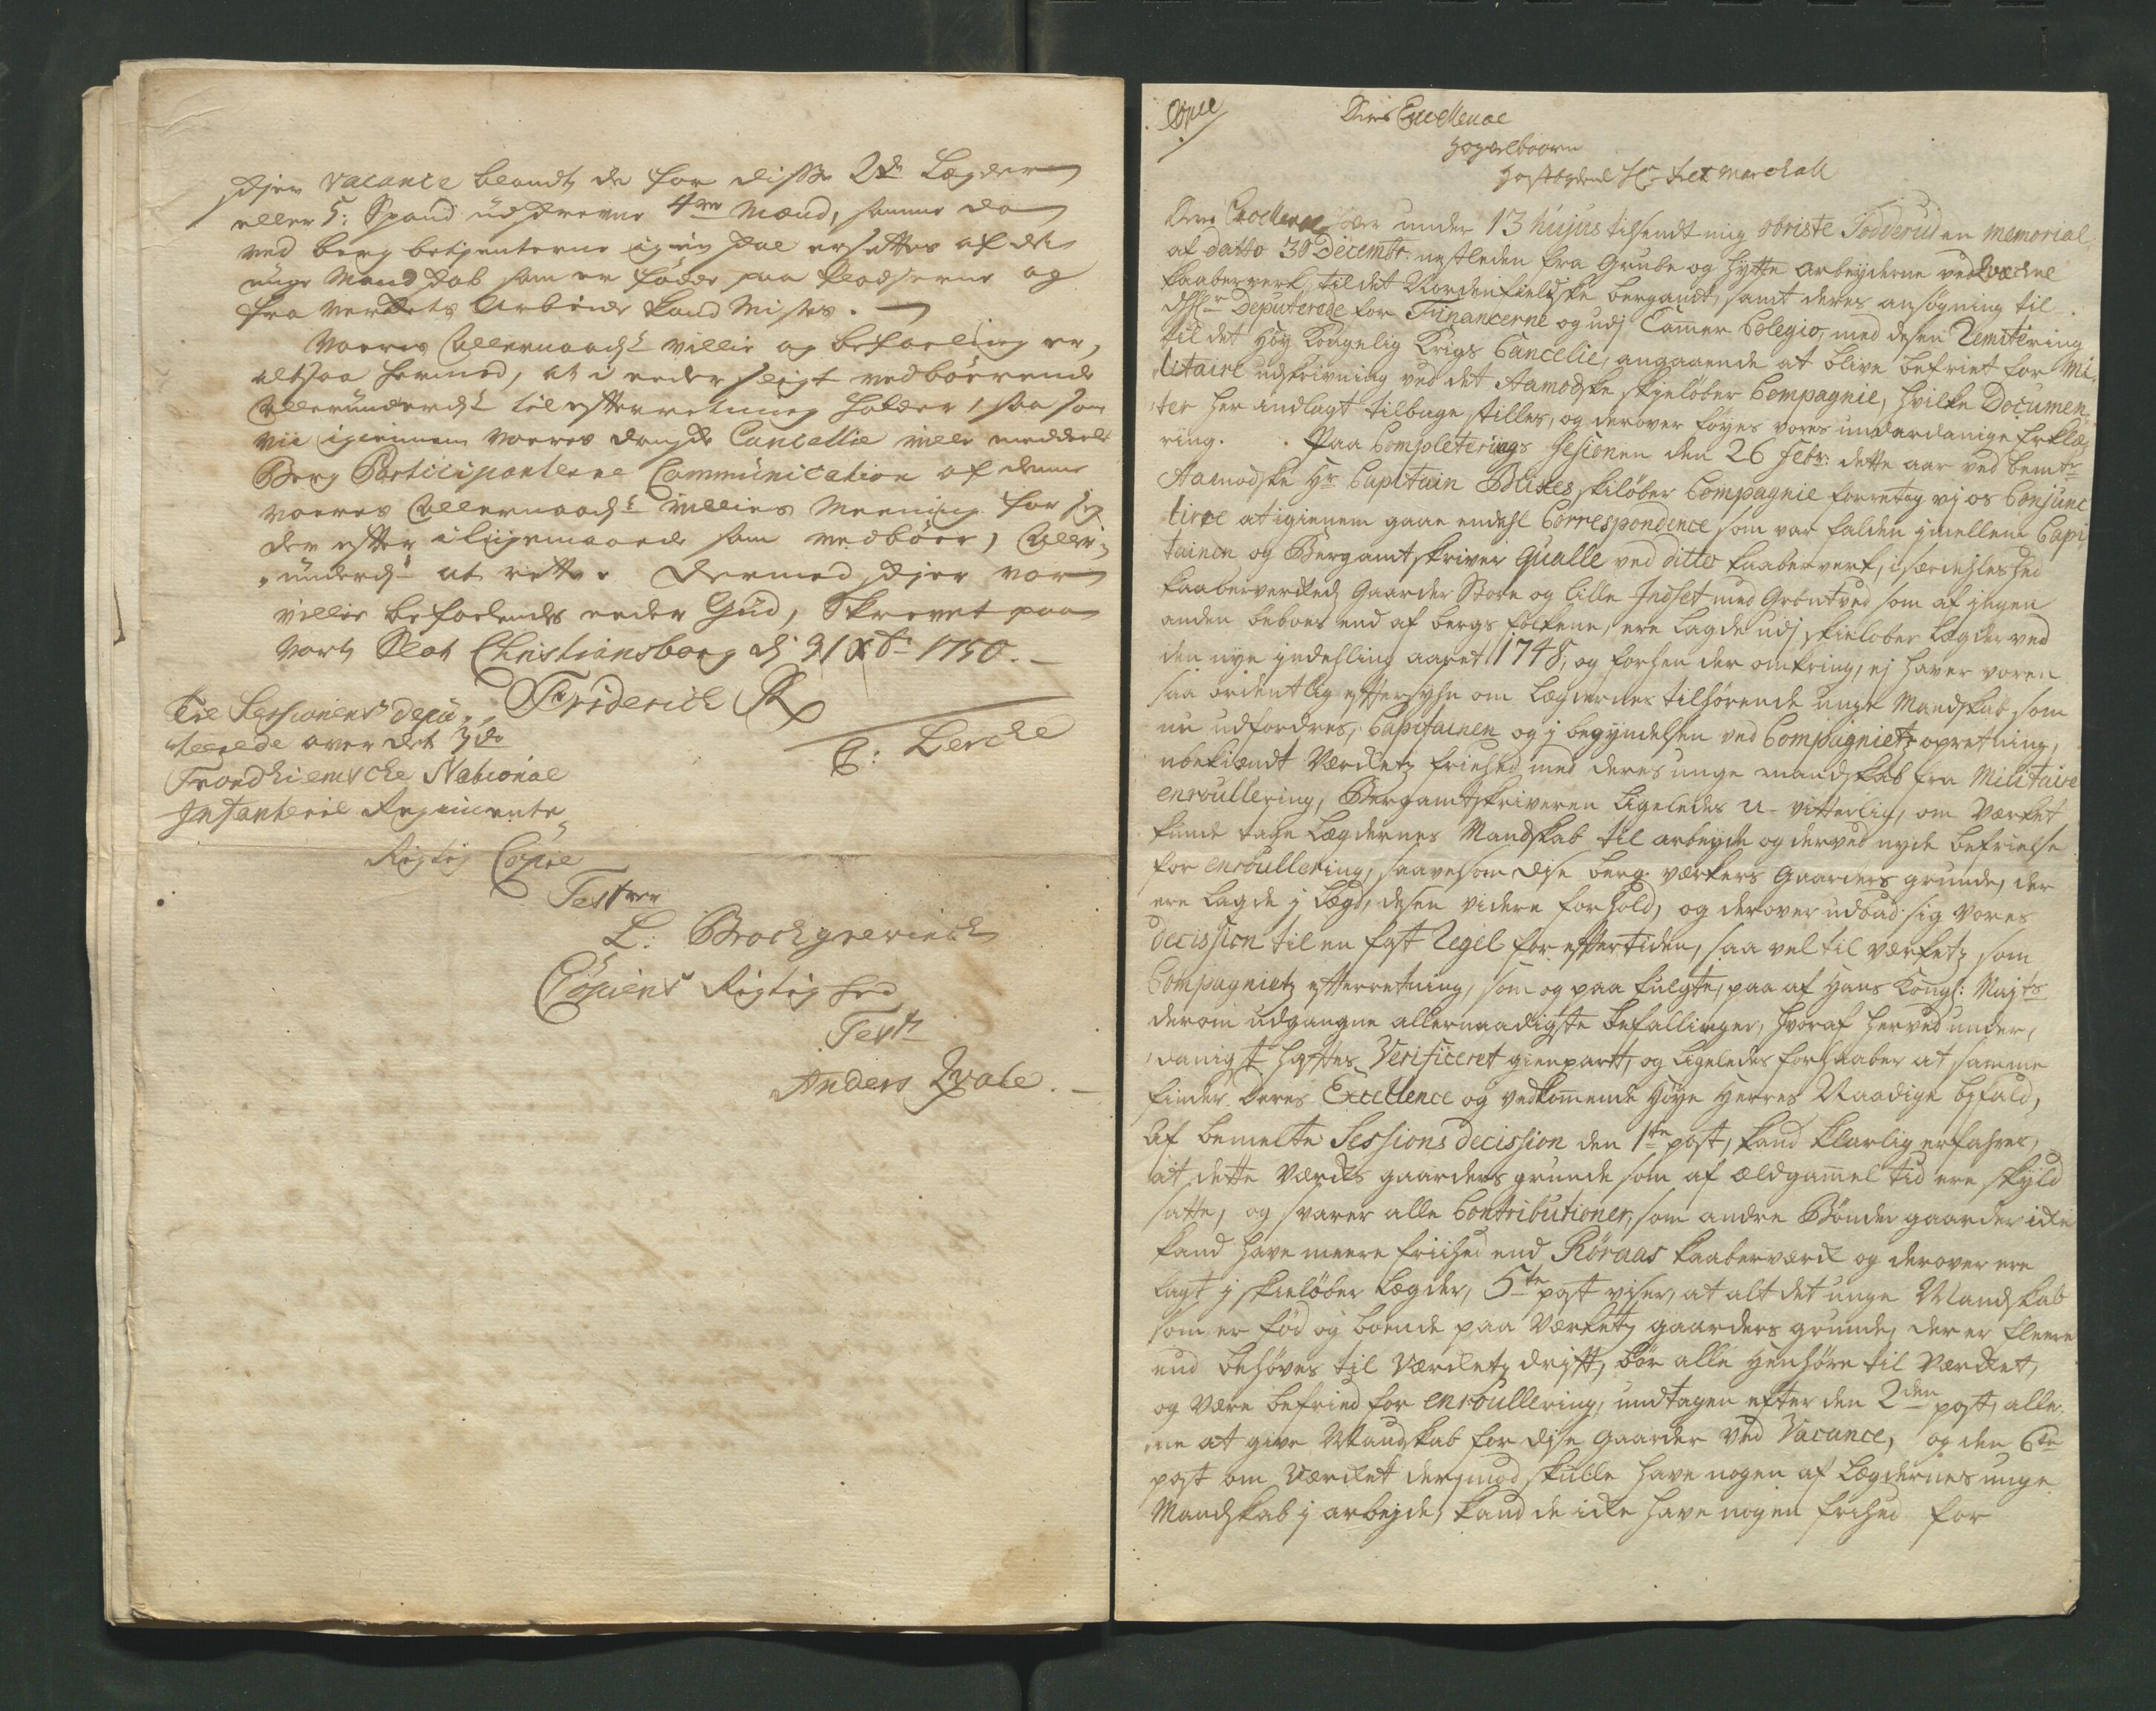 skjer Vacance blandt de for disse 2de Lægder
eller 5: Spand udskrevne 4re Mænd, samme da
ved berg betjenterne igien skal ersettes af det
unge Mandskab som er fødde paa Pladserne og
fra Verkets Arbeide kand mistes.
Vores allernaadst villie og befaeling er,
altsaa hermed, at i eder sligt vedbørende
allerunderdst til efterretning holder, saa som
vii igiennem vores danske Cancellie ville meddeele
Berg Participanterne Communication af denne
voeres allernaadst villies Meening for sig
der efter i liigemaade som vedbør, aller-
underdst at rette. Dermed skjer vor
villie befalendes eder Gud, Skrevet paa
Vort Slot Christiansborg d: 31 Xbr 1750.
Friderich R
E: Lerche
Til Sessionens depu-
terede over det 3de
Trondhiemsche National
Infanterie Regimente
Rigtig Copie
Test
L: Borchgrevinck
Copiens Rigtighed
Test
Anders Qvale.
Copie
Deres Excellence
Høyvelbaarne
Høystbydende Hr Felt Marchall
Deres Excellence haver under 13 hujus tilsendt mig obriste Fodderud en memorial
af datto 30 Decembr: nestleden fra Grube og hytte arbeyderne ved Qvæchne
kaaberverk, til det Nordenfieldske bergamdt, samt deres ansøgning til
d Hr Deputerede for Financerne og udj Cammer Colegio, med desen Remitering
til det høy Kongelig Krigs Cancelie, angaaende at blive befriet for Mi-
litaire udskrivning ved det Aamodske skieløber Compagnie, hvilke Documen-
ter her indlagt tilbage stilles, og derover føyes vores underdanige Erklæ-
ring. Paa Completerings Sesionen den 26 Febr: dette aar ved bemte
Aamodske Hr Capitain Blixes skiløber Compagnie foretog vj os Conjunc
tive at igienem gaae endehl Correspondence som var falden jmellem Capi
tainen og Bergamtskriver Qualle ved ditto kaaberverk, i særdehleshed
kaaberverketz Gaarder Store og Lille Indset med Grøntved som af jngen
anden beboes end af bergs folkene, ere lagde udj skieløber lægder ved
den nye jndehling aaret 1748, og forhen der omkring, ej haver voren
saa ordentlig eftersyhn om Lægdernes tilhørende unge Mandskab, som
nu udfordres, Capitainen og j begyndelsen ved Compagnietz opretning,
ubekiendt Verketz friehed med deres unge mandskab fra Militaire
enroullering, Bergamtskriveren ligeledes u-vitterlig, om Værket
kunde tage Lægdernes Mandskab til arbeyde og derved nyde befrielse
for enroullering, saavelsom dise berg værkers gaarders grunde, der
ere lagde j Lægd, desen videre forhold, og derover udbad sig vores
decission til en fast Regel for eftertiden, saa vel til værketz som
Compagnietz efterretning, som og paa fulgte, paa af Hans Kongl: Majts
derom udgangne allernaadigste befallinger, hvoraf herved under-
danigst hæftes Verificeret gienpart, og ligeledes forhaaber at samme
finder Deres Excellence og vedkommende Høye Herres Naadige byfald,
Af bemelte Sessions decission den 1te post, kand klarlig erfahres,
at dette værks gaarders grunde som af ældgammel tid ere skyld
satte, og svarer alle Contributioner, som andre Bønder gaarder icke
kand have meere friihed end Røraas kaaberværk og derover ere
lagt j skieløber Lægder, 5te post viser, at alt det unge Mandskab
som er fød og boende paa Værketz gaarders grunde, der er fleere
end behøves til Værketz drift, bør alle henhøre til Værket,
og være befried for enroullering, undtagen efter den 2den post, alle-
ene at give Mandskab for dise gaarder ved Vacance, og den 6te
post om Værket derjmod skulle have nogen af Lægdernes unge
Mandskab j arbejde, kand de icke have nogen frihed for